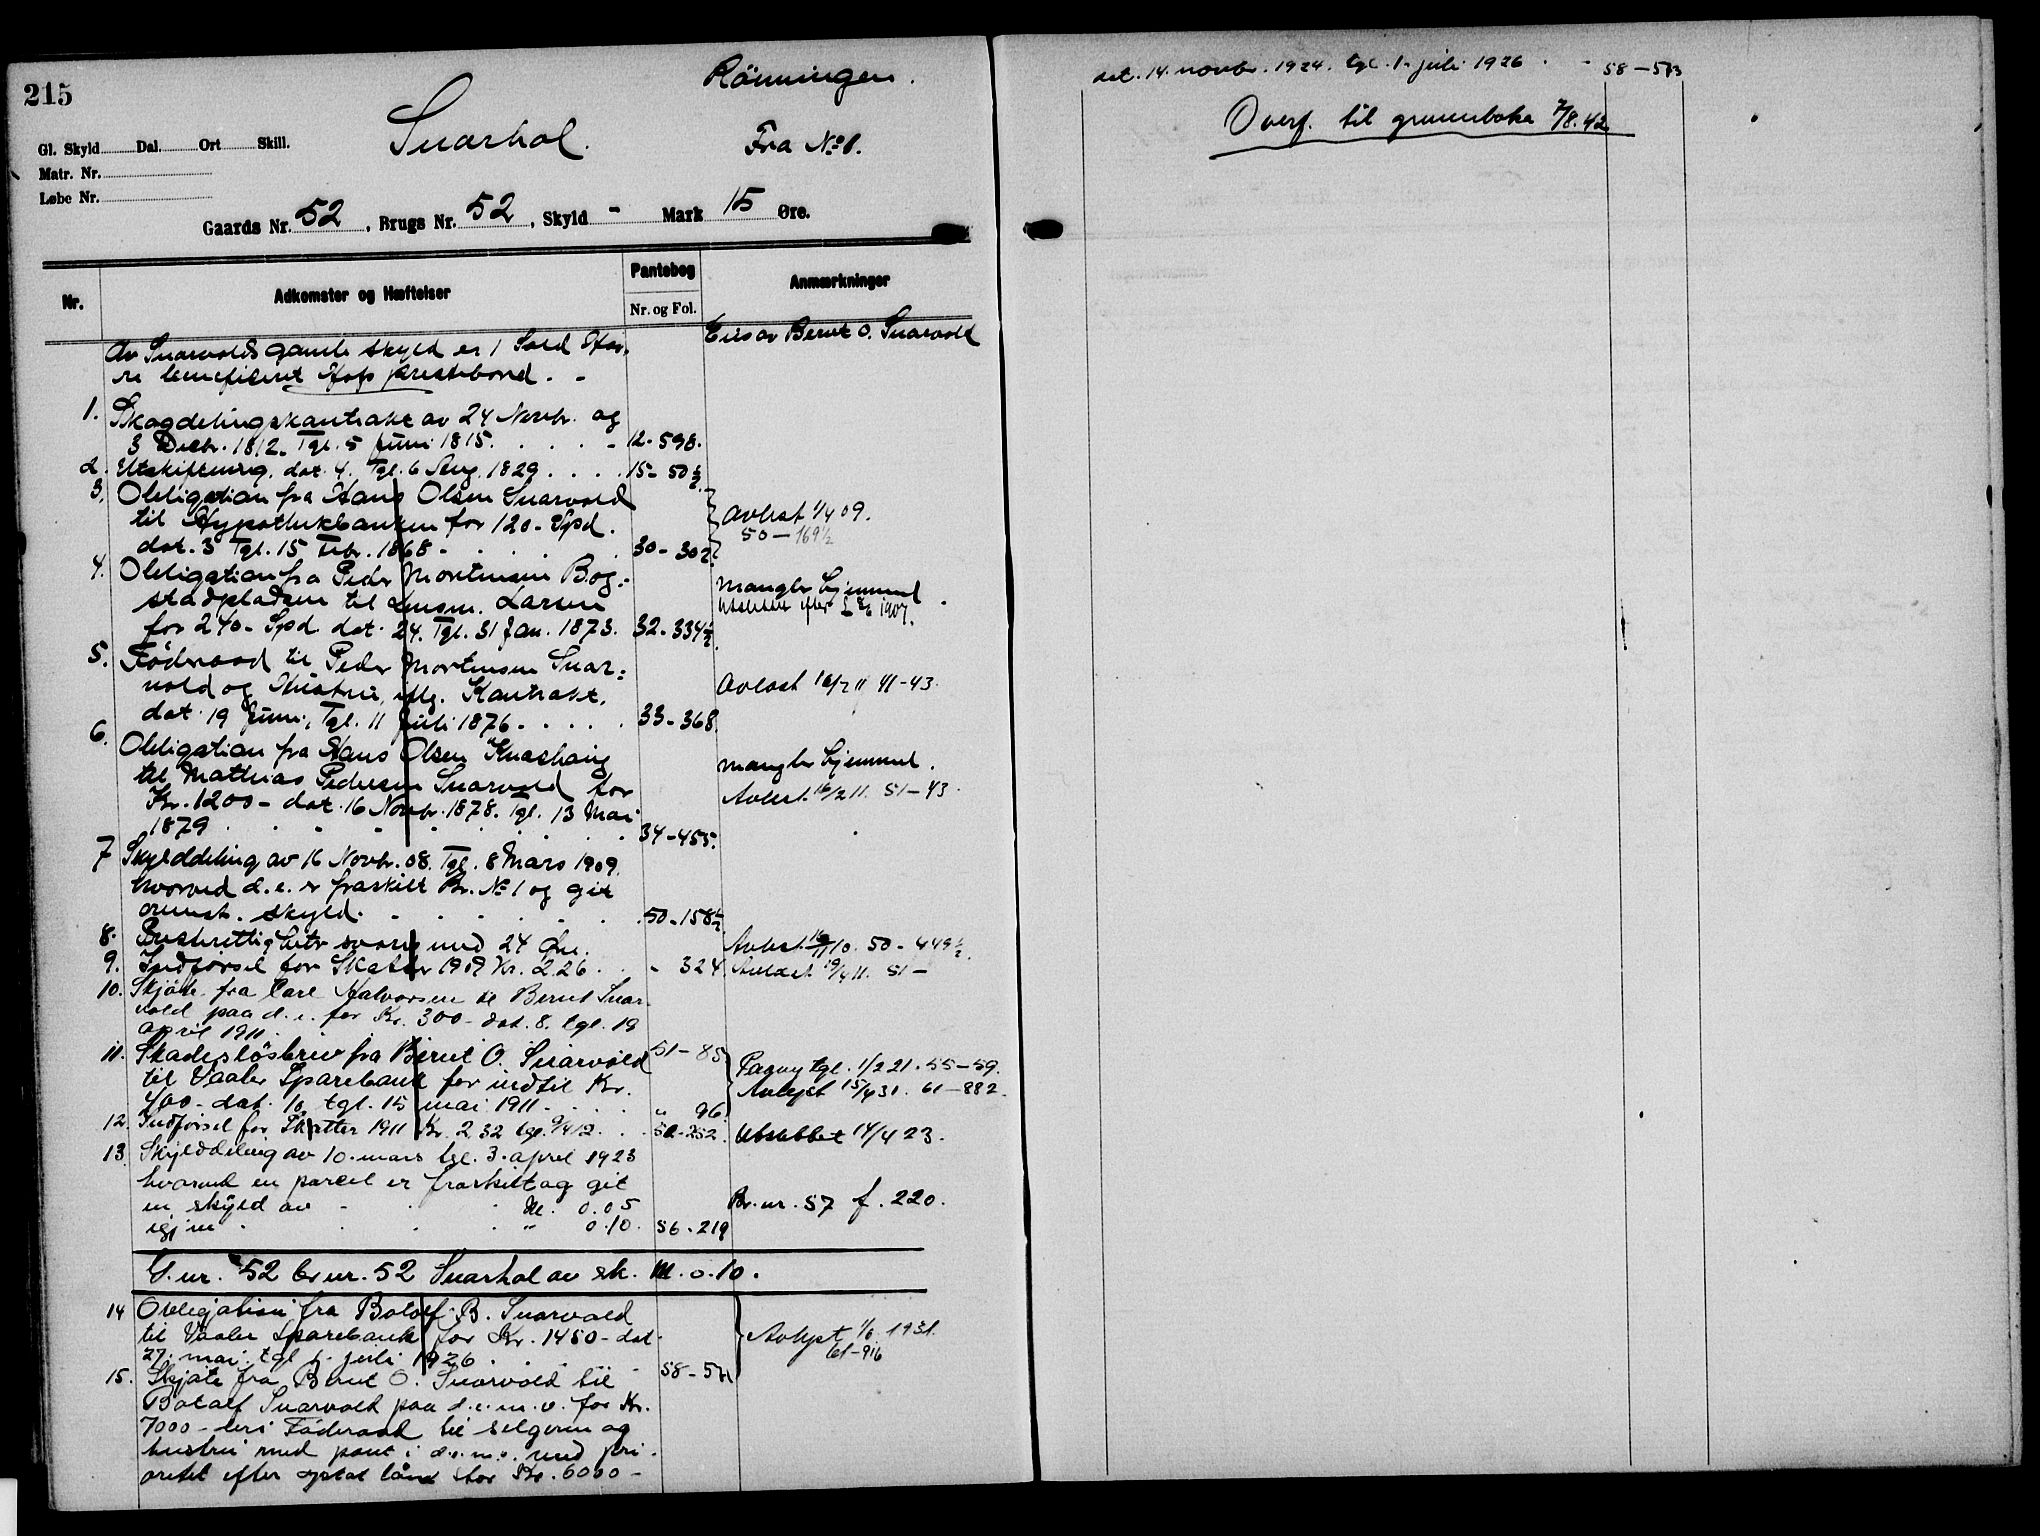 215
Rönningen.
Snarhol.
Fra No 1.
Gl. Skyld Dal. Ort Skill.
Matr. Nr.
Løbe Nr.
Gaards Nr. 52, Brugs Nr. 52, Skyld - Mark 15 Øre.
Nr. Adkomster og Hæftelser Pantebog Nr. og Fol. Anmærkninger
Av Snarvolds gamle skyld er 1 Sold Eies av Bernt O. Snarvold
re beneficeret Hofs prestebord. -
1. Skogdelingskontrakt av 24 Novbr. og
3 Decbr. 1812. Tgl. 5 Juni 1815. 12-598.
2. Utskiftning, dat. 4. Tgl. 6 Aug. 1829 15-50½
3. Obligation fra Hans Olsen Snarvold
til Hypothekbanken for 120- Spd. Avlest 1/4 09.
50-169½
dat. 3 Tgl. 15 Febr. 1868- 30-302
4. Obligation fra Peder Mortensen Bog-
stadpladsen til Lensm. Larsen mangler hjemmel
Utslettet efter L 1907.
for 240- Spd. dat. 24. Tgl. 31 Jan. 1873. 32-334½
5. Föderaad til Peder Mortensen Snar-
vold og Hustru, iflg. Kontrakt, Avlest 16/2 11 41-43.
dat. 19 Juni, Tgl. 11 Juli 1876- 33-368.
6. Obligation fra Hans Olsen Knashaug
til Mathias Pedersen Snarvold for mangler hjemmel.
Kr. 1200- dat. 16 Novbr. 1878. Tgl. 13 Mai Avlest. 16/2 11. 51-43.
1879 34-455.
7 Skylddeling av 16 Novbr. 08. Tgl. 8 Mars 1909.
hvorved d. e. er fraskilt Br. No 1 og git
ovennt. skyld. 50-158½
8. Presterettigheter svares med 24 Øre. Avlest. 10. 50-449½
9. Indførsel for Skatter 1909 Kr. 2.26. - 324 Avlest 19/4 11. 51-
10. Skjöte fra Carl Halvorsen til Bernt Snar-
vold paa d. e. for Kr. 300- dat. 8. tgl. 19
april 1911. 51-85
11. Skadeslösbrev fra Bernt O. Snarvold
til Vaaler Sparebank for indtil Kr. Paany tgl. 1/2 21. 55-59.
400- dat. 10 tgl. 15 mai 1911- " 96. Avlyst 15/4 31. 61-882.
12. Indførsel for Skatter 1911 Kr. 2.32 tgl. 9/4 12. 52-252. Utslettet 14/4 23.
13. Skylddeling av 10. mars tgl. 3. april 1923
hvorved en parcel er fraskilt og git
en skyld av M. 0.05 Br. nr. 57 f. 220.
igjen " 0.10. 56-219
G. nr. 52 br. nr. 52 Snarhol av sk. M. 0.10.
14 Obligation fra Botolf B. Snarvold
til Vaaler Sparebank for Kr. 1450- dat. Avlyst 1/6 1931.
61-916
27. mai. tgl. 1. juli 1926. 58-571
15. Skjöte fra Bernt O. Snarvold til
Botolf Snarvold paa d. e. m. v. for Kr.
7000- heri Föderaad til selgeren og
hustru med pant i d. e. m. v. med pri-
oritet efter optat lån stor Kr. 6000-
dat. 14. novbr. 1924. tgl. 1. juli 1926. 58-573
Overf. til grunnboka 7/8.42.